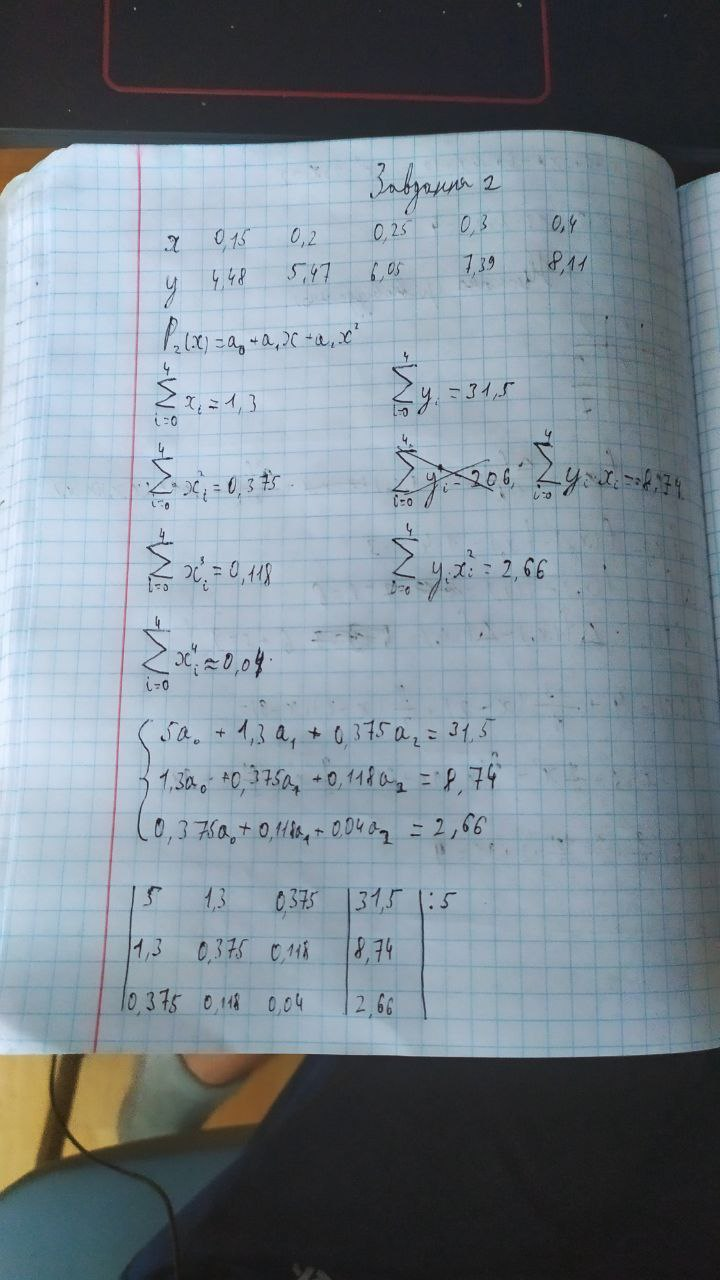 Завдання 2
x 0,15 0,2 0,25 0,3 0,4
y 4,48 5,47 6,05 7,39 8,11
P₂(x) = a₀ + a₁x + a₁x²
∑⁴ᵢ₌₀ xᵢ = 1,3 ∑⁴ᵢ₌₀ yᵢ = 31,5
∑⁴ᵢ₌₀ xᵢ² = 0,375 ∑⁴ᵢ₌₀ yᵢ = 206, ∑⁴ᵢ₌₀ yᵢ xᵢ = 8,74
∑⁴ᵢ₌₀ xᵢ³ = 0,118 ∑⁴ᵢ₌₀ yᵢxᵢ² = 2,66
∑⁴ᵢ₌₀ xᵢ⁴ ≈ 0,04
5a₀ + 1,3a₁ + 0,375a₂ = 31,5
1,3a₀ + 0,375a₁ + 0,118a₂ = 8,74
0,375a₀ + 0,118a₁ + 0,04a₂ = 2,66
5 1,3 0,375 | 31,5 | :5
1,3 0,375 0,118 | 8,74
0,375 0,118 0,04 | 2,66